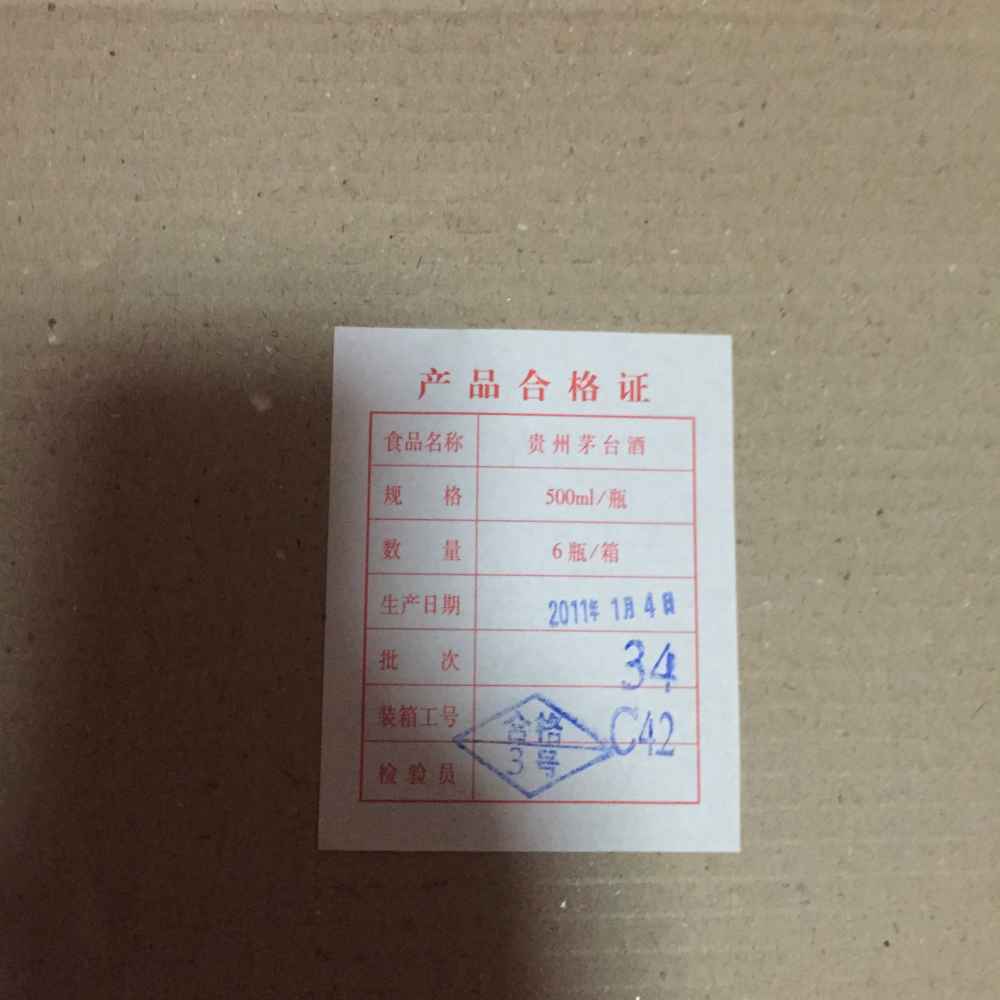 产品合格证
食品名称 贵州茅台酒
规格 500ml/瓶
数量 6瓶/箱
生产日期 2011年1月4日
批次 34
装箱工号 C42
检验员 合格
3号